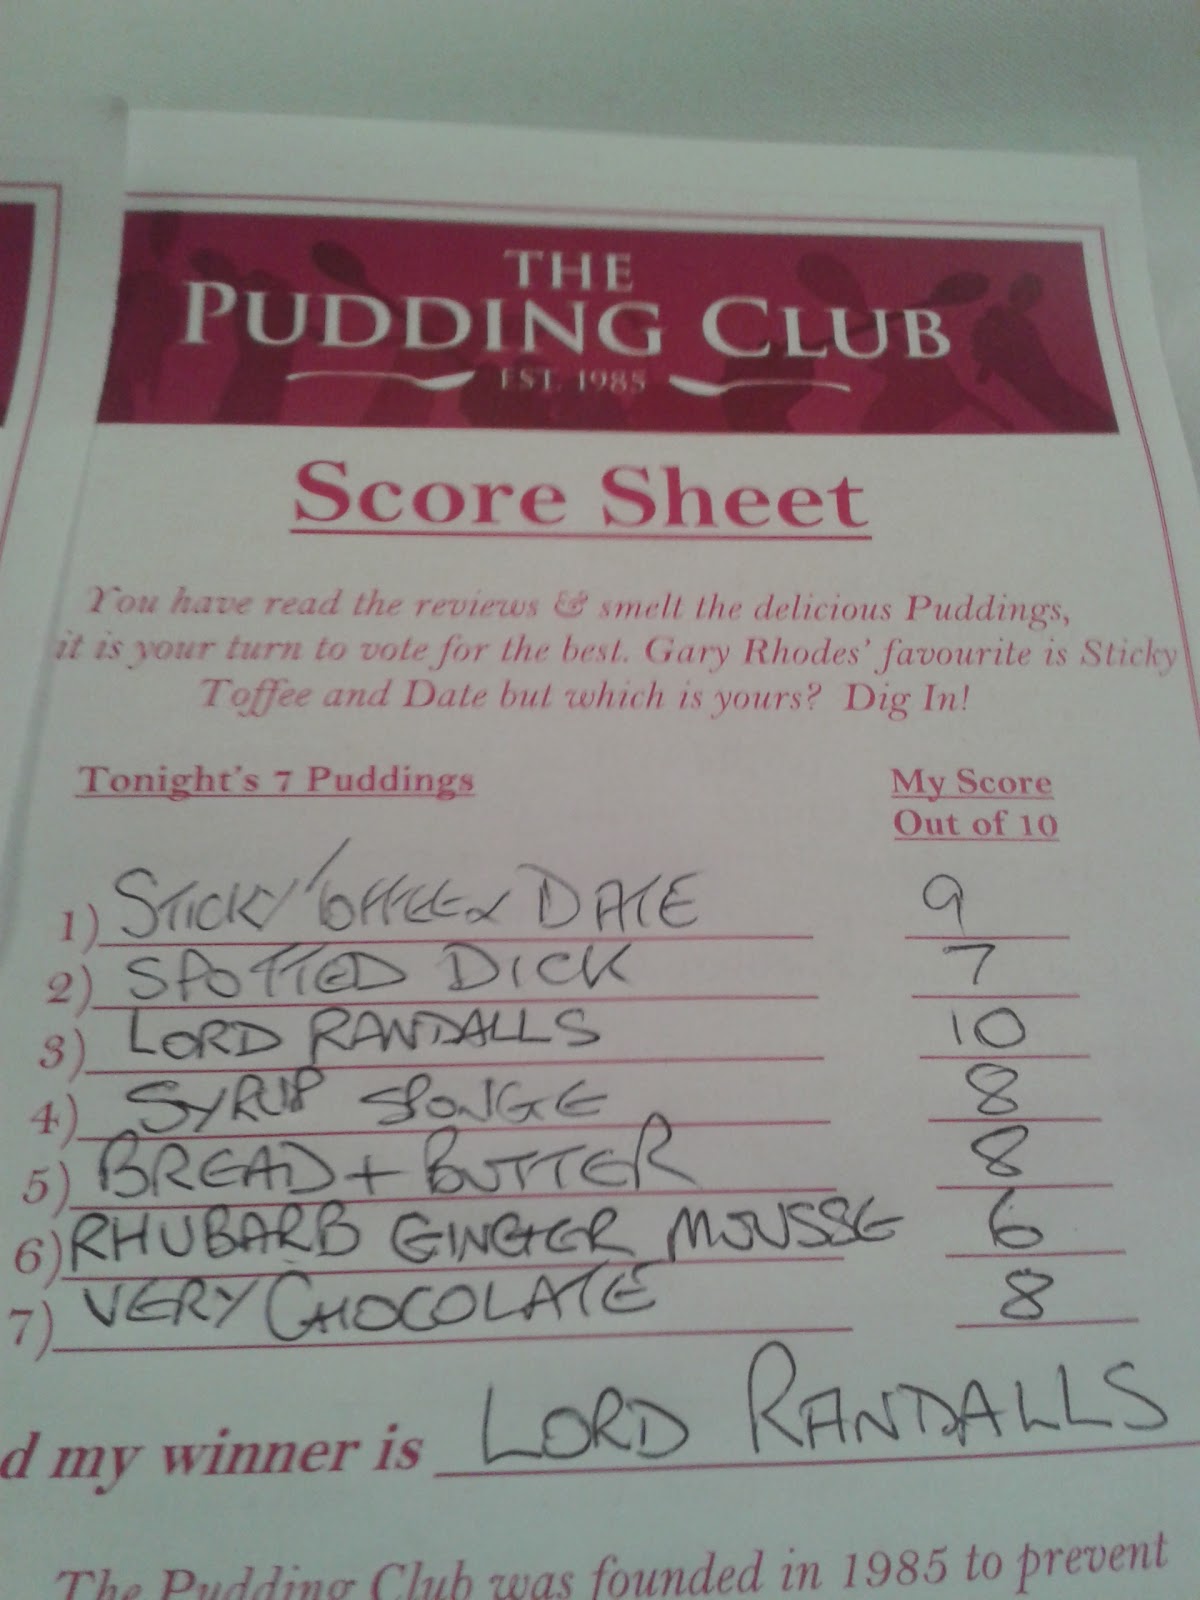 THE
PUDDING CLUB
EST. 1985
Score Sheet
You have read the reviews & smelt the delicious Puddings,
it is your turn to vote for the best. Gary Rhodes' favourite is Sticky
Toffee and Date but which is yours? Dig In!
Tonight's 7 Puddings My Score
Out of 10
1) STICKY TOFFEE & DATE 9
2) SPOTTED DICK 7
3) LORD RANDALLS 10
4) SYRUP SPONGE 8
5) BREAD + BUTTER 8
6) RHUBARB GINGER MOUSSE 6
7) VERY CHOCOLATE 8
d my winner is LORD RANDALLS
The Pudding Club was founded in 1985 to prevent